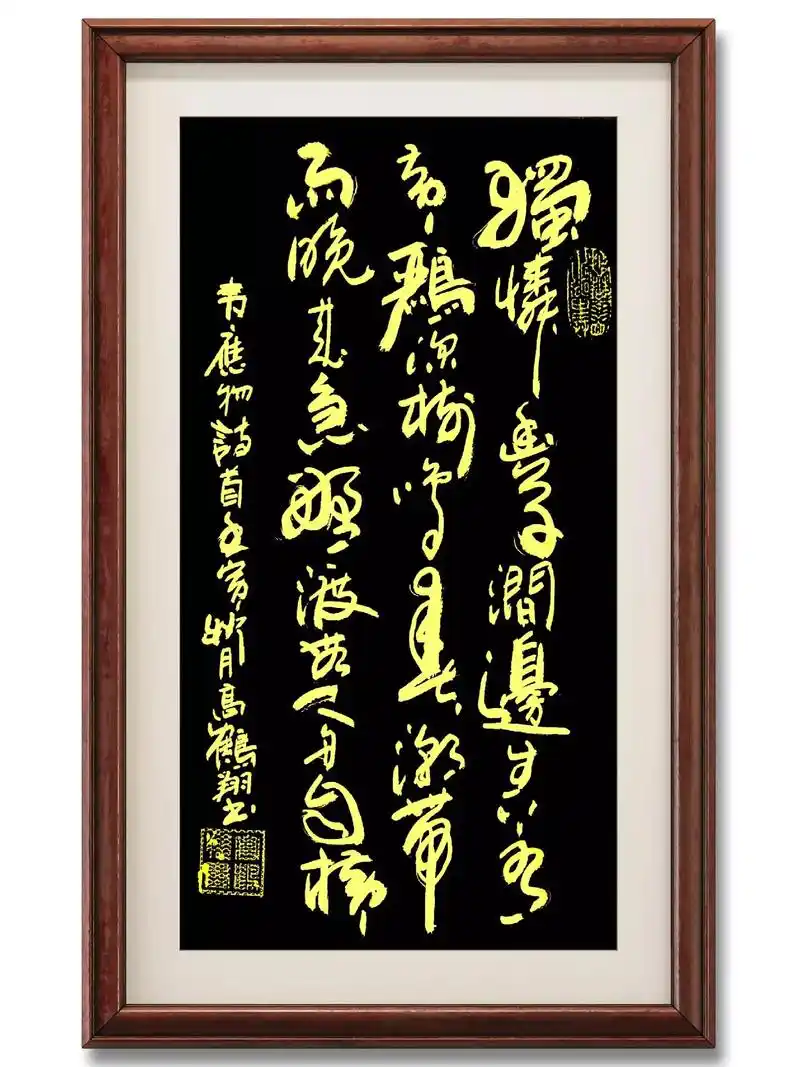 獨憐幽草澗邊生上有
黃鸝深樹鳴春潮帶
雨晚來急野渡無人舟自橫
韋應物詩首壬寅月高鶴翔書